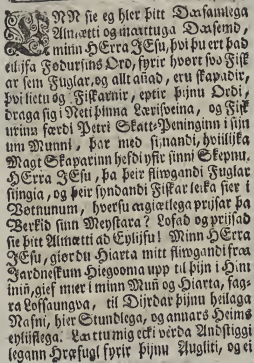 ENN sie eg hler þitt Dasamlega
Almætti og maattuga Dasemd,
minn HErra JEsu, þvi þu ert þad
eilijfa Fødursins Ord, fyrir hvørt svo Fisk
ar sem Fuglar, og allt añad, eru skapadir,
þvi lietu og Fiskarnir, eptir þijnu Ordi,
draga sig i Net þinna Lærisveina, og Fisk
urinn færdi Petri Skatt-Peninginn i sijn
um Munni, þar med sinandi, hviilijka
Magt Skaparinn hefdi yfir sinni Skepnu.
HErra JEsu, þa þeir fliwgandi Fuglar
sijngia, og þeir syndandi Fiskar leika sier i
Vøtnunum, hversu agiætlega prijsar þa
Verkid sinn Meystara? Lofad og prijsad
sie þitt Almætti ad Eylijfu! Minn HErra
JEsu, giørdu Hiarta mitt fliwgandi fraa
Jardneskum Hiegooma upp til þijn i Him
iniñ, gief mier i minn Muñ og Hiarta, fag-
ra Lofsaungva, til Dijrdar þijnu heilaga
Nafni, hier Stundlega, og annars Heims
eylijflega. Lættu mig ecki verda Andstiggi
legann Hræfugl fyrir þijnu Augliti, og ei